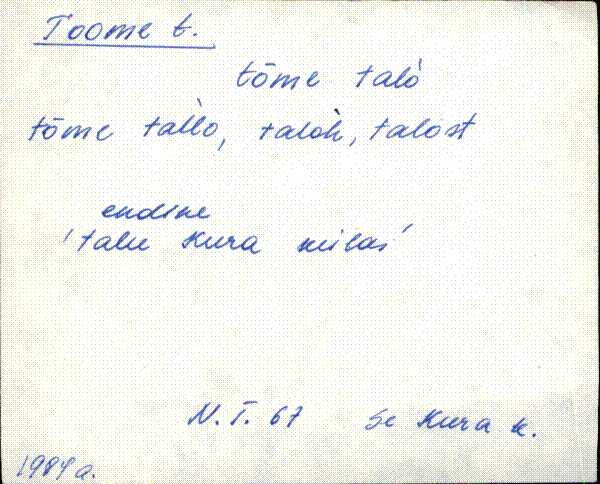 Toome t.
tōme talò
tōme tal̀lo, talòh, talost
endine
'talu Kura külas'
N.T. 67 Se Kura k.
1984 a.